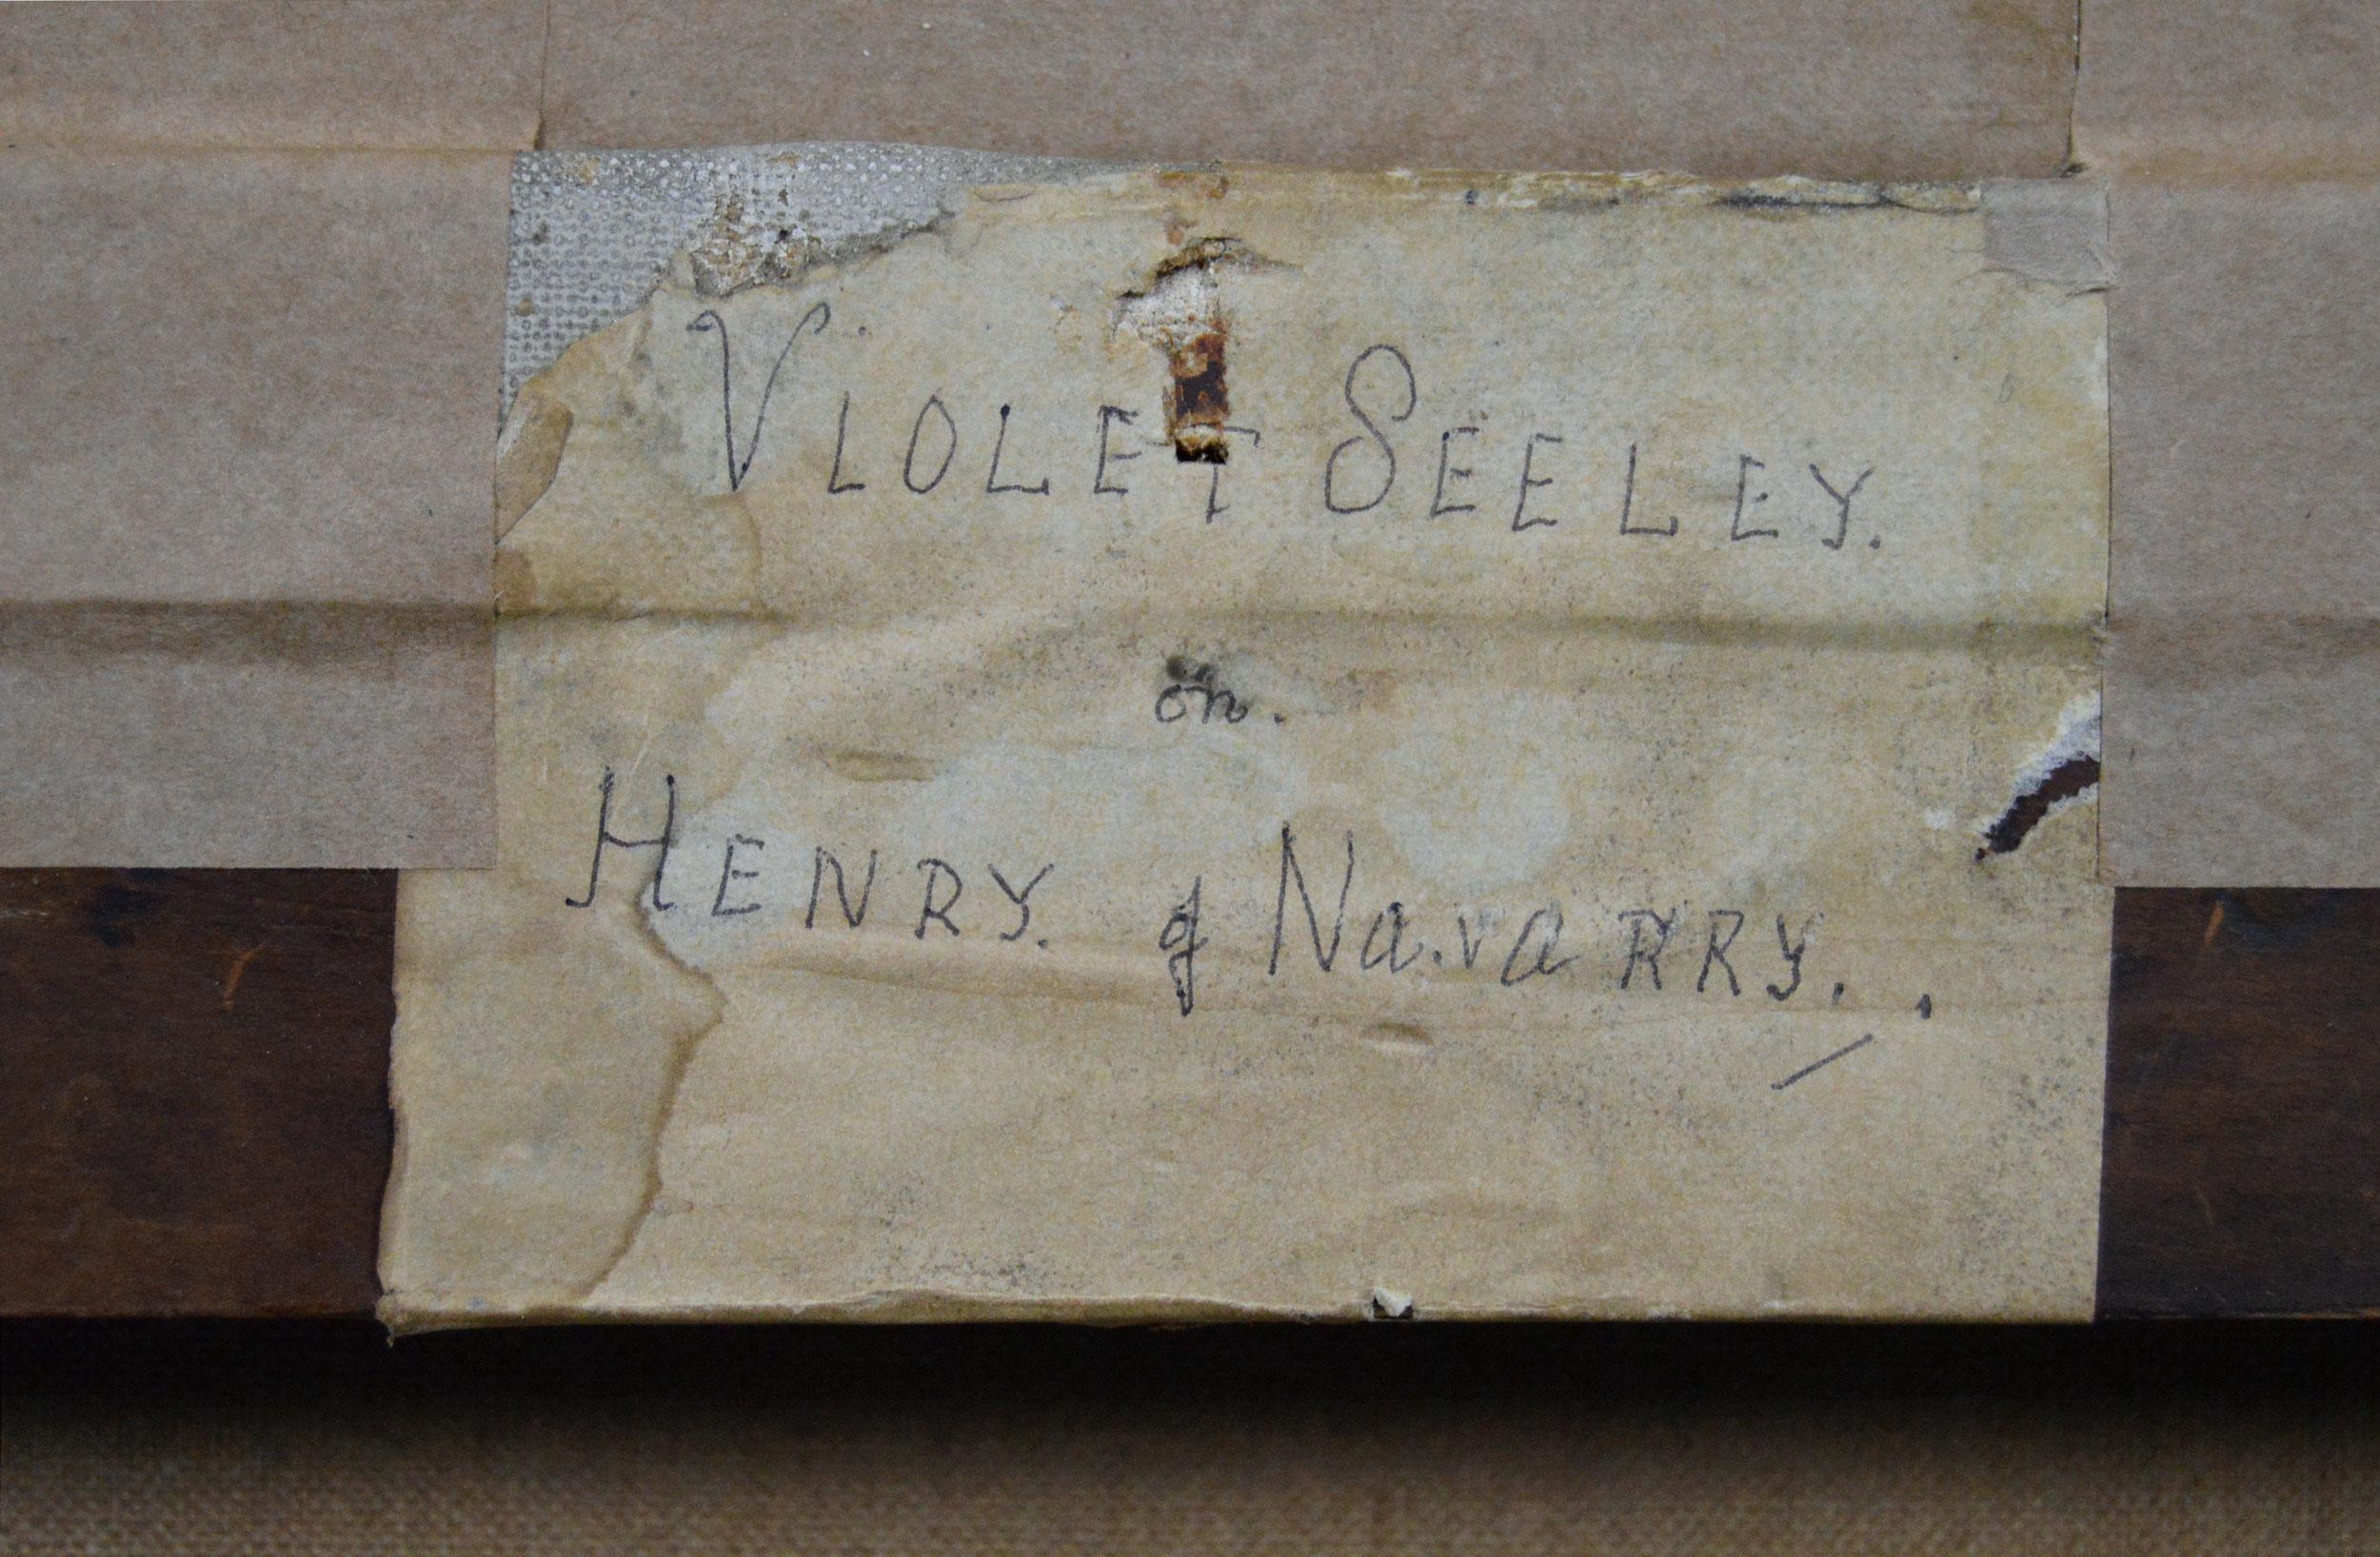 VIOLET SEELEY.
on.
HENRY. of NavaRRY..